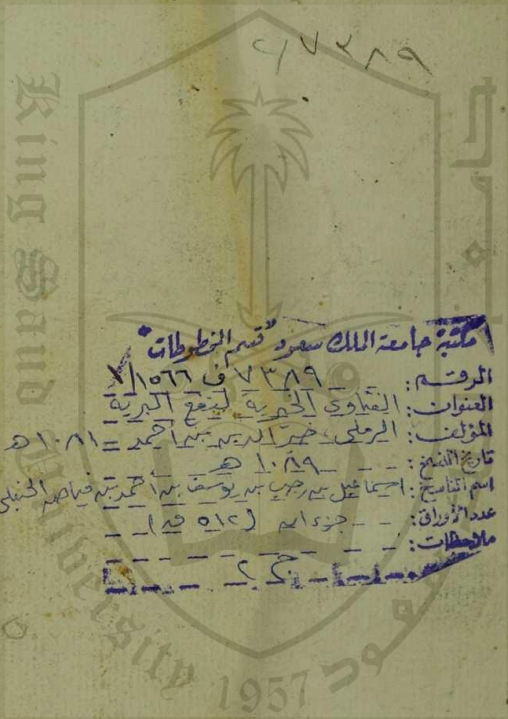 ٧٣٨٩/ج
مكتبة جامعة الملك سعود "قسم المخطوطات"
الرقم: ٧٣٨٩ ف ١٥٦٦/٧
العنوان: الفتاوى الخيرية لنفع البرية
المؤلف: الرملي، خير الدين بن أحمد - ١٠٨١ هـ
تاريخ النسخ: ١٠٨٩ هـ
اسم الناسخ: اسماعيل بن رجب بن يوسف بن أحمد بن الحنبلي
عدد الأوراق: جزءان (٥١٢ ق)
ملاحظات:
ج ٢
King Saud University
1957